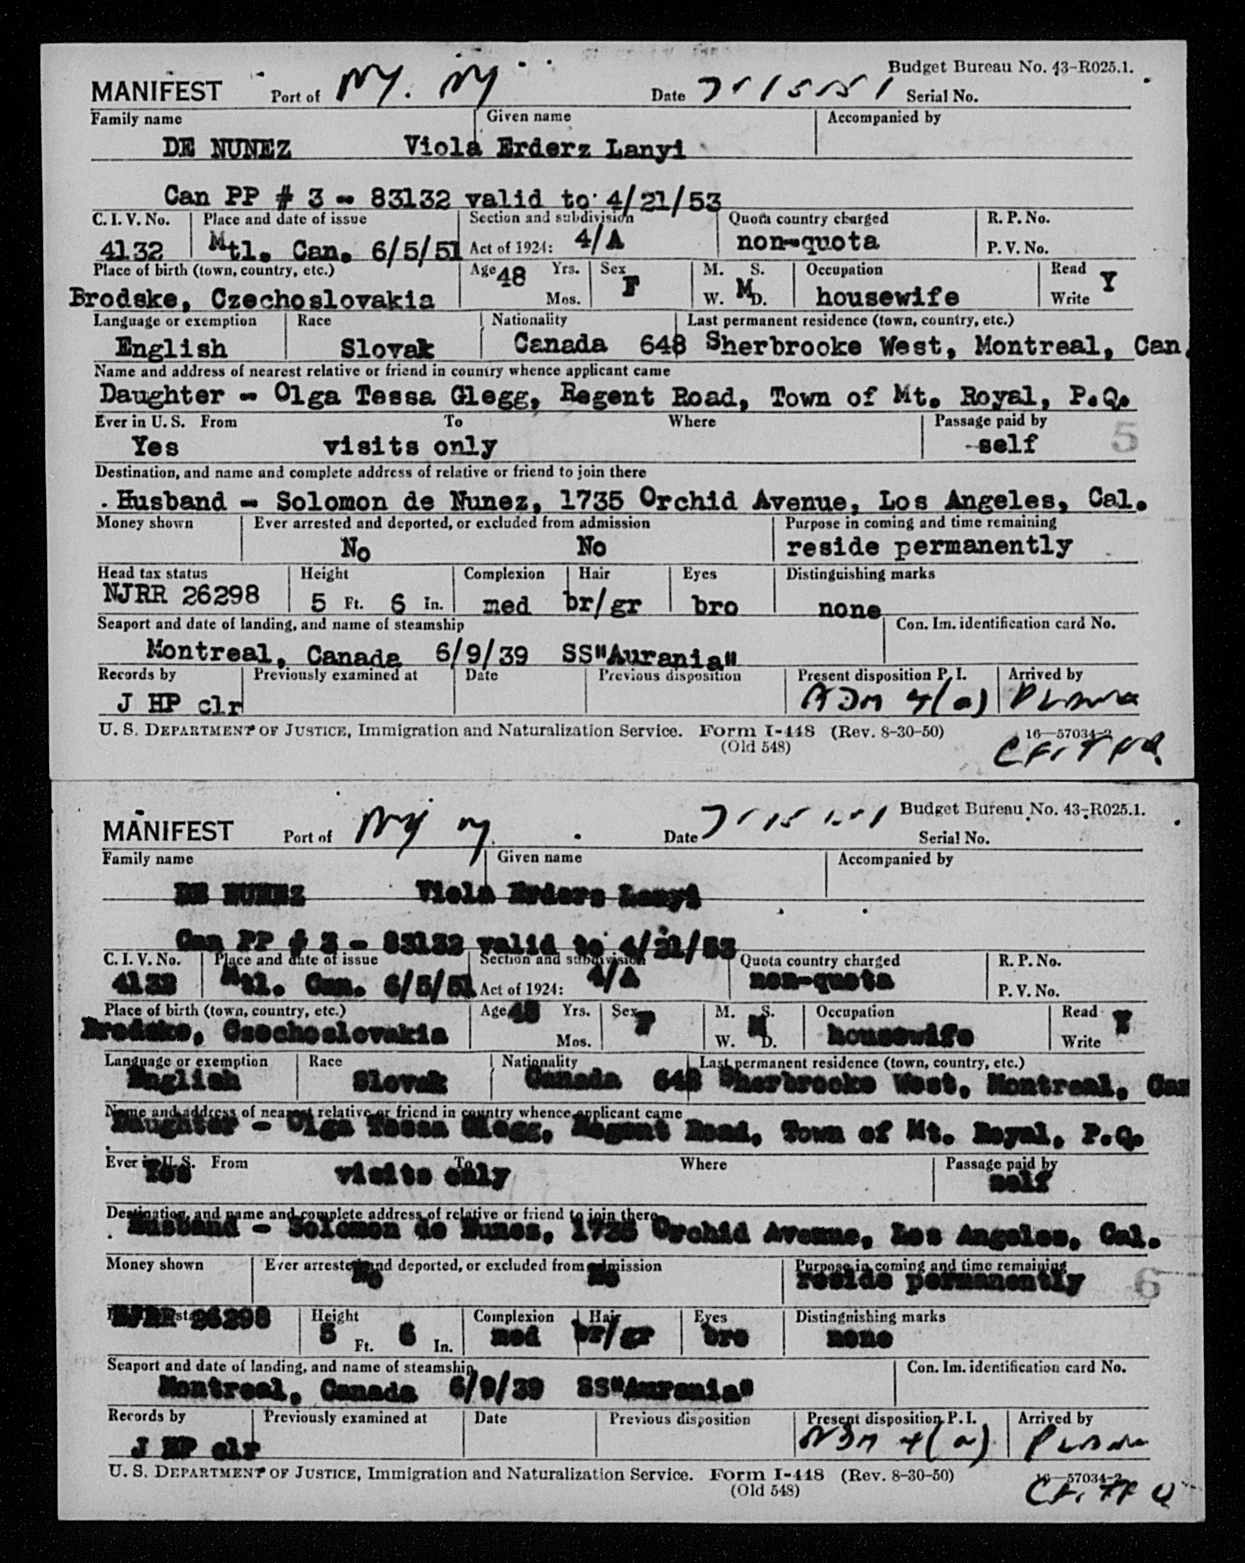 Budget Bureau No. 43-R025.1.
MANIFEST Port of NY. NY Date 7/15/51 Serial No.
Family name Given name Accompanied by
DE NUNEZ Viola Erderz Lanyi
Can PP # 3 - 83132 valid to 4/21/53
C. I. V. No. Place and date of issue Section and subdivision Quota country charged R. P. No.
4132 Mtl. Can. 6/5/51 Act of 1924: 4/A non-quota P. V. No.
Place of birth (town, country, etc.) Age 48 Yrs. Sex M. S. Occupation Read Y
Brodske, Czechoslovakia Mos. F W. M D. housewife Write
Language or exemption Race Nationality Last permanent residence (town, country, etc.)
English Slovak Canada 648 Sherbrooke West, Montreal, Can.
Name and address of nearest relative or friend in country whence applicant came
Daughter - Olga Tessa Glegg, Regent Road, Town of Mt. Royal, P.Q.
Ever in U. S. From To Where Passage paid by
Yes visits only self 5
Destination, and name and complete address of relative or friend to join there
Husband - Solomon de Nunez, 1735 Orchid Avenue, Los Angeles, Cal.
Money shown Ever arrested and deported, or excluded from admission Purpose in coming and time remaining
No No reside permanently
Head tax status Height Complexion Hair Eyes Distinguishing marks
NJRR 26298 5 Ft. 6 In. med br/gr bro none
Seaport and date of landing, and name of steamship Con. Im. identification card No.
Montreal, Canada 6/9/39 SS"Aurania"
Records by Previously examined at Date Previous disposition Present disposition P. I. Arrived by
J HP clr ADM 4(a)
U. S. DEPARTMENT OF JUSTICE, Immigration and Naturalization Service. Form I-448 (Rev. 8-30-50) 16—57034-2
(Old 548)
Budget Bureau No. 43-R025.1.
MANIFEST Port of NY NY. Date 7/15/51 Serial No.
Family name Given name Accompanied by
DE NUNEZ Viola Erderz Lanyi
Can PP # 3 - 83132 valid to 4/21/53
C. I. V. No. Place and date of issue Section and subdivision Quota country charged R. P. No.
4132 Mtl. Can. 6/5/51 Act of 1924: 4/A non-quota P. V. No.
Place of birth (town, country, etc.) Age 48 Yrs. Sex M. S. Occupation Read Y
Brodske, Czechoslovakia Mos. F W. M D. housewife Write
Language or exemption Race Nationality Last permanent residence (town, country, etc.)
English Slovak Canada 648 Sherbrooke West, Montreal, Can
Name and address of nearest relative or friend in country whence applicant came
Daughter - Olga Tessa Glegg, Regent Road, Town of Mt. Royal, P.Q.
Ever in U. S. From To Where Passage paid by
Yes visits only self
Destination, and name and complete address of relative or friend to join there
Husband - Solomon de Nunez, 1735 Orchid Avenue, Los Angeles, Cal.
Money shown Ever arrested and deported, or excluded from admission Purpose in coming and time remaining
No No reside permanently 6
Head tax status Height Complexion Hair Eyes Distinguishing marks
NJRR 26298 5 Ft. 6 In. med br/gr bro none
Seaport and date of landing, and name of steamship Con. Im. identification card No.
Montreal, Canada 6/9/39 SS"Aurania"
Records by Previously examined at Date Previous disposition Present disposition P. I. Arrived by
J HP clr ADM 4(a)
U. S. DEPARTMENT OF JUSTICE, Immigration and Naturalization Service. Form I-448 (Rev. 8-30-50) 16—57034-2
(Old 548)